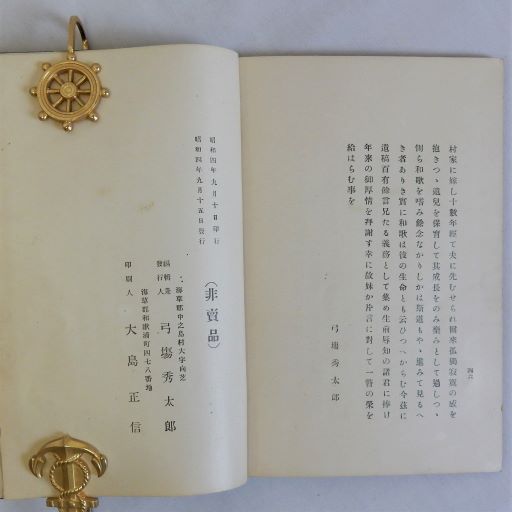 村家に嫁し十數年經て夫に先むせられ爾來孤獨寂寞の感を
抱きつゝ遺兒を保育して其成長をのみ樂みとして過しつゝ
側ら和歌を嗜み餘念なかりしかは斯道もやゝ進みて見るへ
き者ありき實に和歌は彼の生命とも云ひつへからむ今玆に
遺稿百有餘首兄たる義務として集め生前辱知の諸君に捧け
年來の御厚情を拜謝す幸に故妹か片言に對して一瞥の榮を
給はらむ事を
弓場秀太郎
四六
昭和四年九月十日印刷
昭和四年九月十五日發行
(非賣品)
海草郡中之島村大字向芝
編輯兼
發行人
弓場秀太郎
海草郡和歌浦町四七八番地
印刷人
大島正信